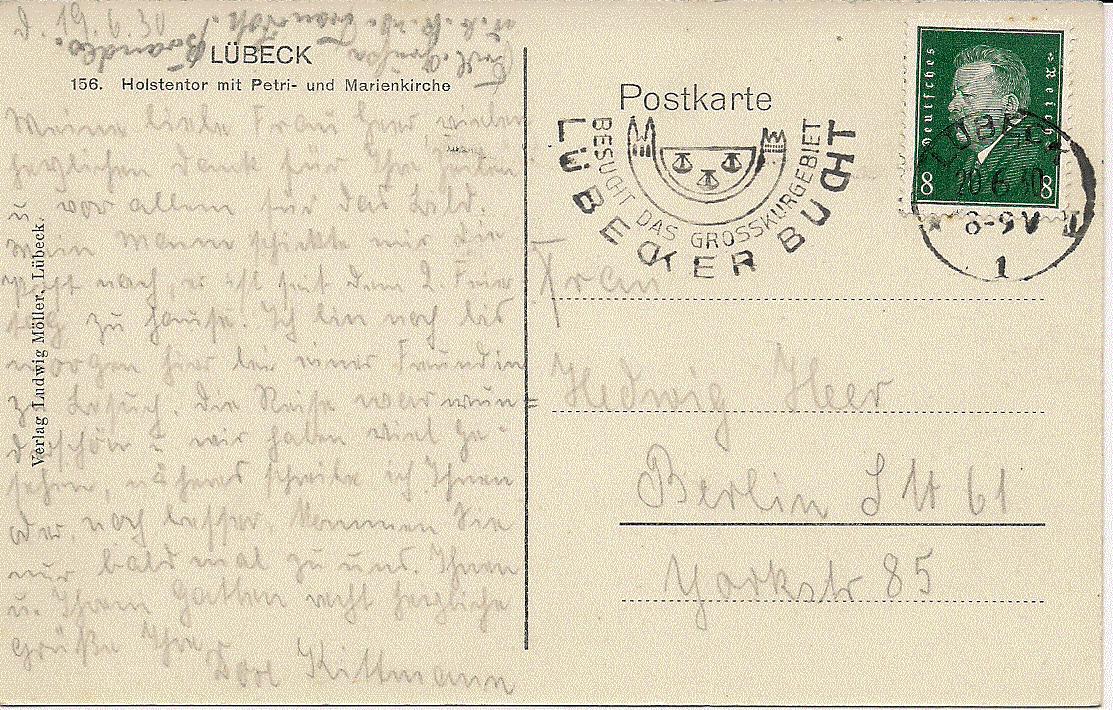 d. 19.6.30
LÜBECK
156. Holstentor mit Petri- und Marienkirche
Meine liebe Frau Heer, vielen
herzlichen Dank für Ihre Zeilen
u. vor allem für das Bild.
Mein Mann schickte mir die
Post nach, er ist seit dem 2 Feier-
tag zu Hause. Ich bin noch bis
morgen hier bei einer Freundin
zu Besuch. Die Reise war wun=
derschön u. wir haben viel ge-
sehen, näheres schreibe ich Ihnen
oder, noch besser, kommen Sie
nur bald mal zu uns. Ihnen
u. Ihrem Gatten recht herzliche
Grüße Ihre
Kittmann
Verlag Ludwig Möller, Lübeck.
Postkarte
BESUCHT DAS GROSSKURGEBIET
LÜBECKER BUCHT
Deutsches Reich
8 8
LÜBECK
20.6.30
1
Frau
Hedwig Heer
Berlin SW 61
Yorkstr 85